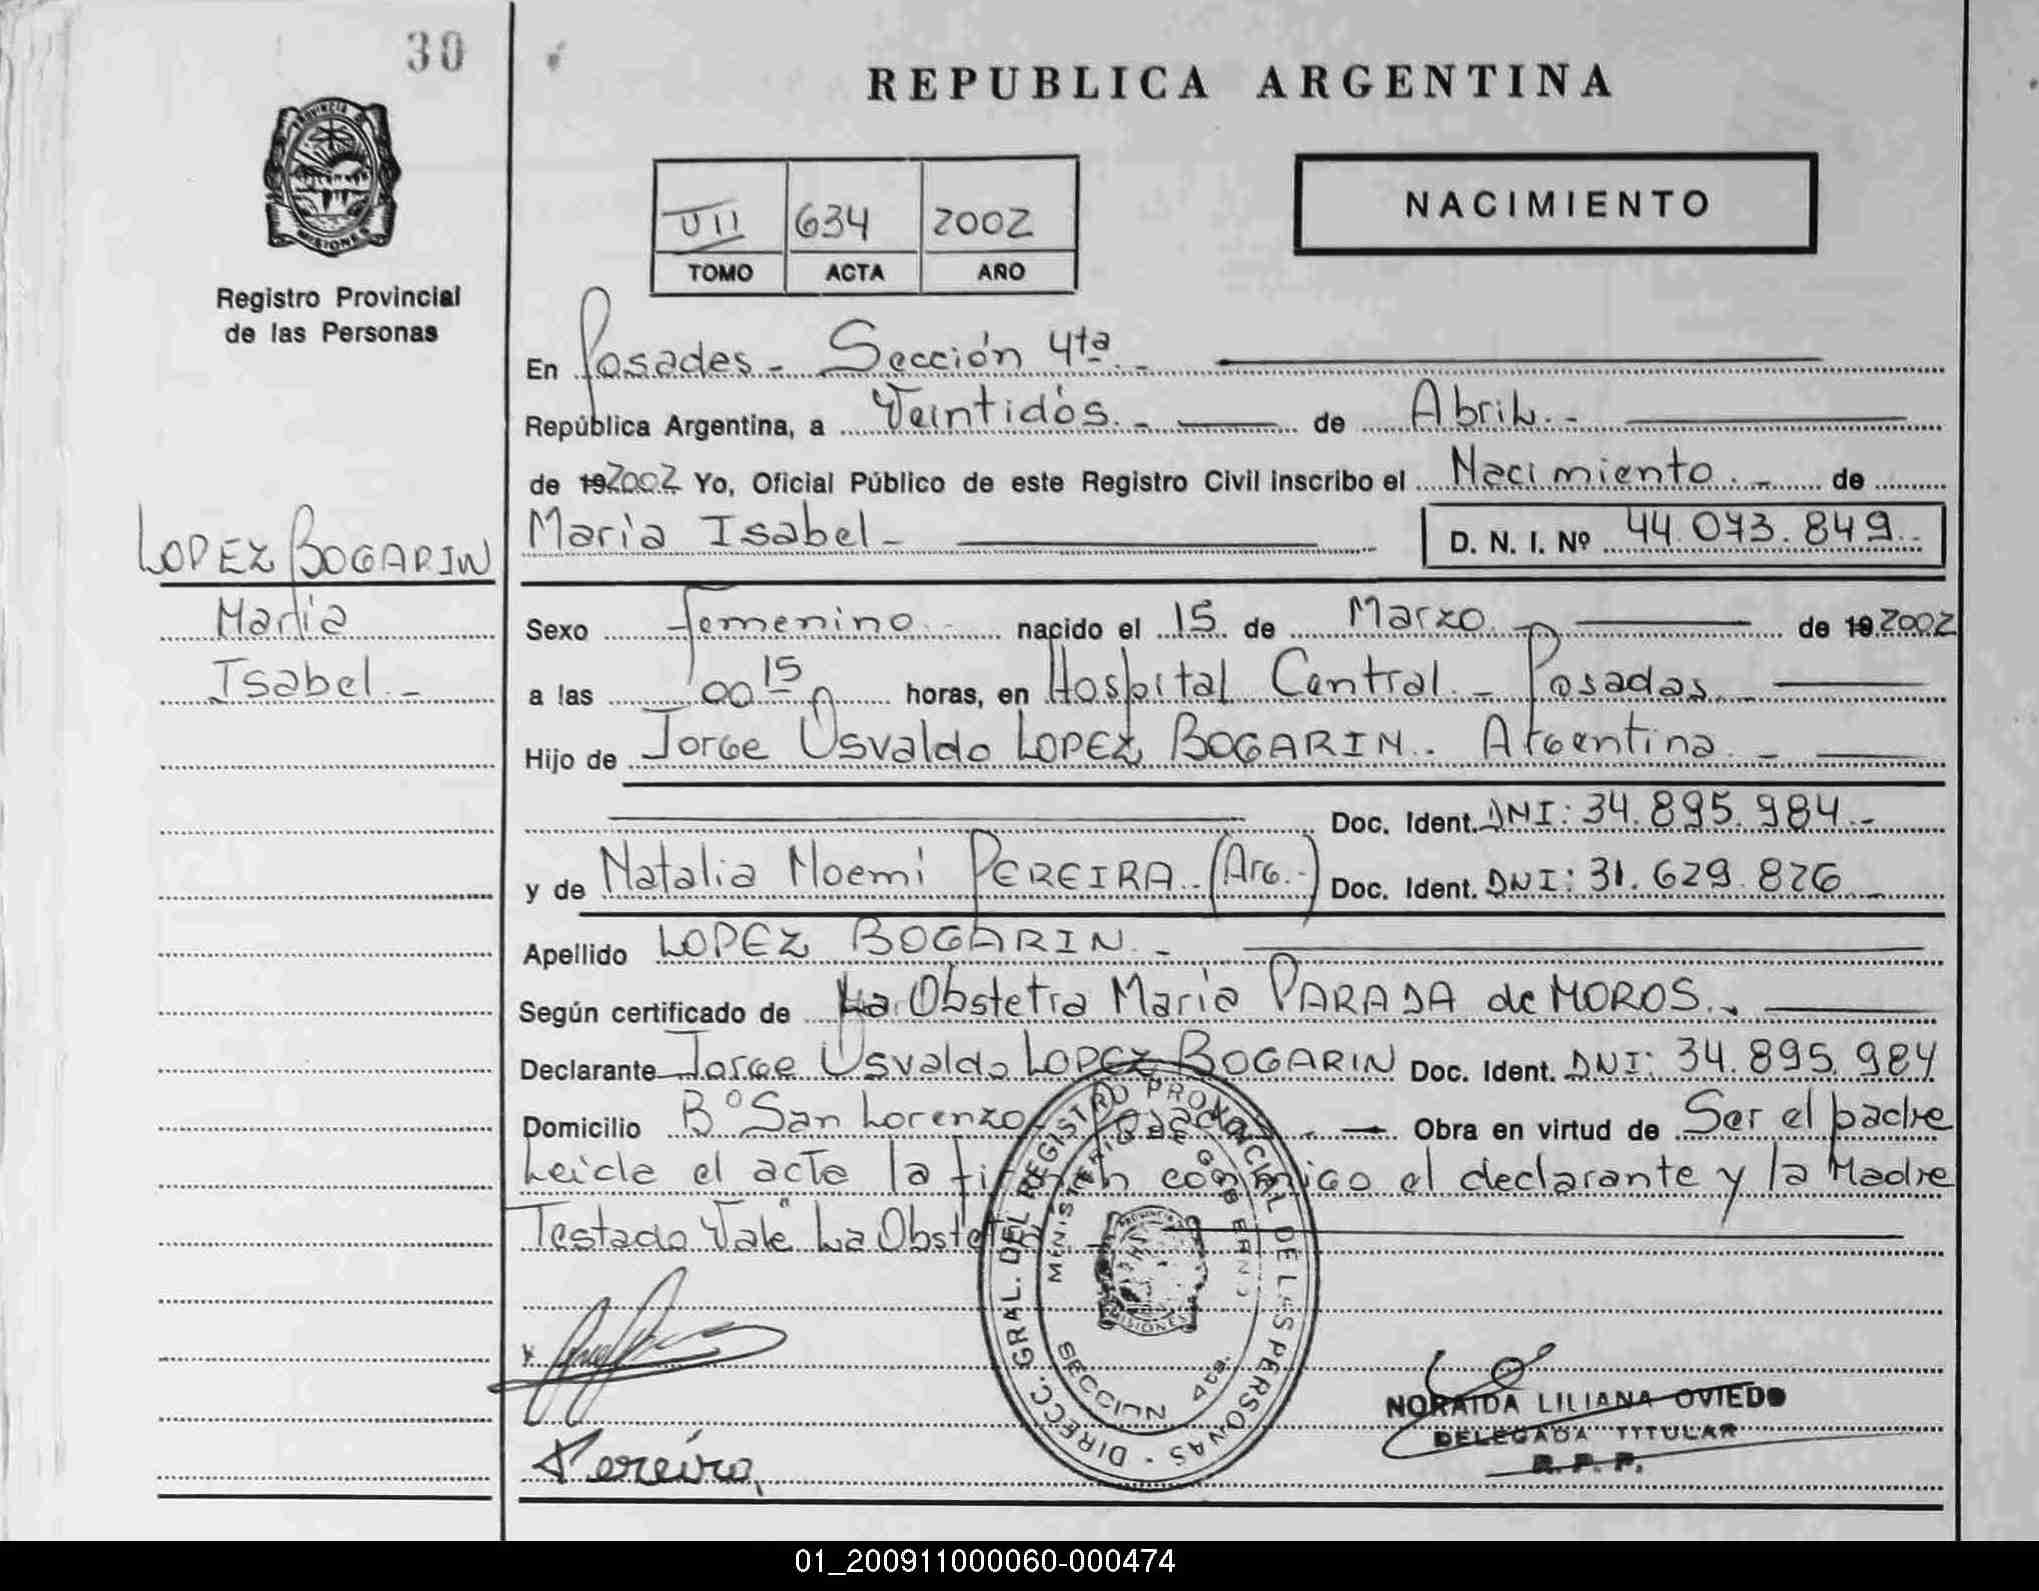 30
PROVINCIA DE
MISIONES
Registro Provincial
de las Personas
LOPEZ BOGARIN
María
Isabel.-
REPUBLICA ARGENTINA
NACIMIENTO
VII 634 2002
TOMO ACTA AÑO
En Posadas - Sección 4ta. -
República Argentina, a Veintidós. - de Abril. -
de 19 2002 Yo, Oficial Público de este Registro Civil inscribo el Nacimiento. - de
María Isabel - D. N. I. Nº 44.073.849.
Sexo Femenino. nacido el 15 de Marzo de 19 2002
a las 00 15 horas, en Hospital Central. - Posadas. -
Hijo de Jorge Osvaldo LOPEZ BOGARIN. Argentina. -
Doc. Ident. DNI: 34.895.984.-
y de Natalia Noemí PEREIRA. (Arg.-) Doc. Ident. DNI: 31.629.826
Apellido LOPEZ BOGARIN. -
Según certificado de La Obstetra María PARADA de MOROS. -
Declarante Jorge Osvaldo LOPEZ BOGARIN Doc. Ident. DNI: 34.895.984
Domicilio Bº San Lorenzo Posadas. - Obra en virtud de Ser el padre
Leída el acta la firman conmigo el declarante y la Madre
Testado Vale" La Obstetra
DIRECC. GRAL. DEL REGISTRO PROVINCIAL DE LAS PERSONAS
MINISTERIO DE GOBIERNO
MISIONES
SECCION 4ta.
Pereira
NORAIDA LILIANA OVIEDO
DELEGADA TITULAR
R. P. P.
01_200911000060-000474